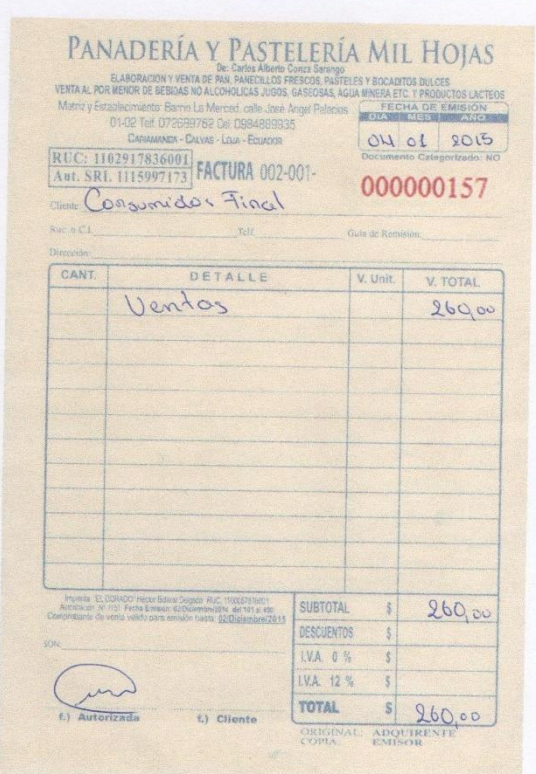 PANADERÍA Y PASTELERÍA MIL HOJAS
De: Carlos Alberto Conza Sarango
ELABORACIÓN Y VENTA DE PAN, PANECILLOS FRESCOS, PASTELES Y BOCADITOS DULCES
VENTA AL POR MENOR DE BEBIDAS NO ALCOHOLICAS JUGOS, GASEOSAS, AGUA MINERA ETC. Y PRODUCTOS LACTEOS
Matriz y Establecimiento: Barrio La Merced, calle José Angel Palacios
01-02 Telf. 072689762 Cel. 0984889935
CARIAMANGA - CALVAS - LOJA - ECUADOR
FECHA DE EMISIÓN
DIA MES AÑO
04 01 2015
Documento Categorizado: NO
RUC: 1102917836001
Aut. SRI. 1115997173
FACTURA 002-001-
000000157
Cliente: Consumidor Final
Ruc. o C.I. Telf. Guía de Remisión:
Dirección:
CANT. DETALLE V. Unit. V. TOTAL
Ventas 260,00
Imprenta "EL DORADO" Héctor Bolívar Delgado RUC.
Comprobante de venta válido para emisión hasta: 02/Diciembre/2015
SON:
SUBTOTAL $ 260,00
DESCUENTOS $
I.V.A. 0 % $
I.V.A. 12 % $
TOTAL $ 260,00
f.) Autorizada f.) Cliente
ORIGINAL: ADQUIRENTE
COPIA: EMISOR